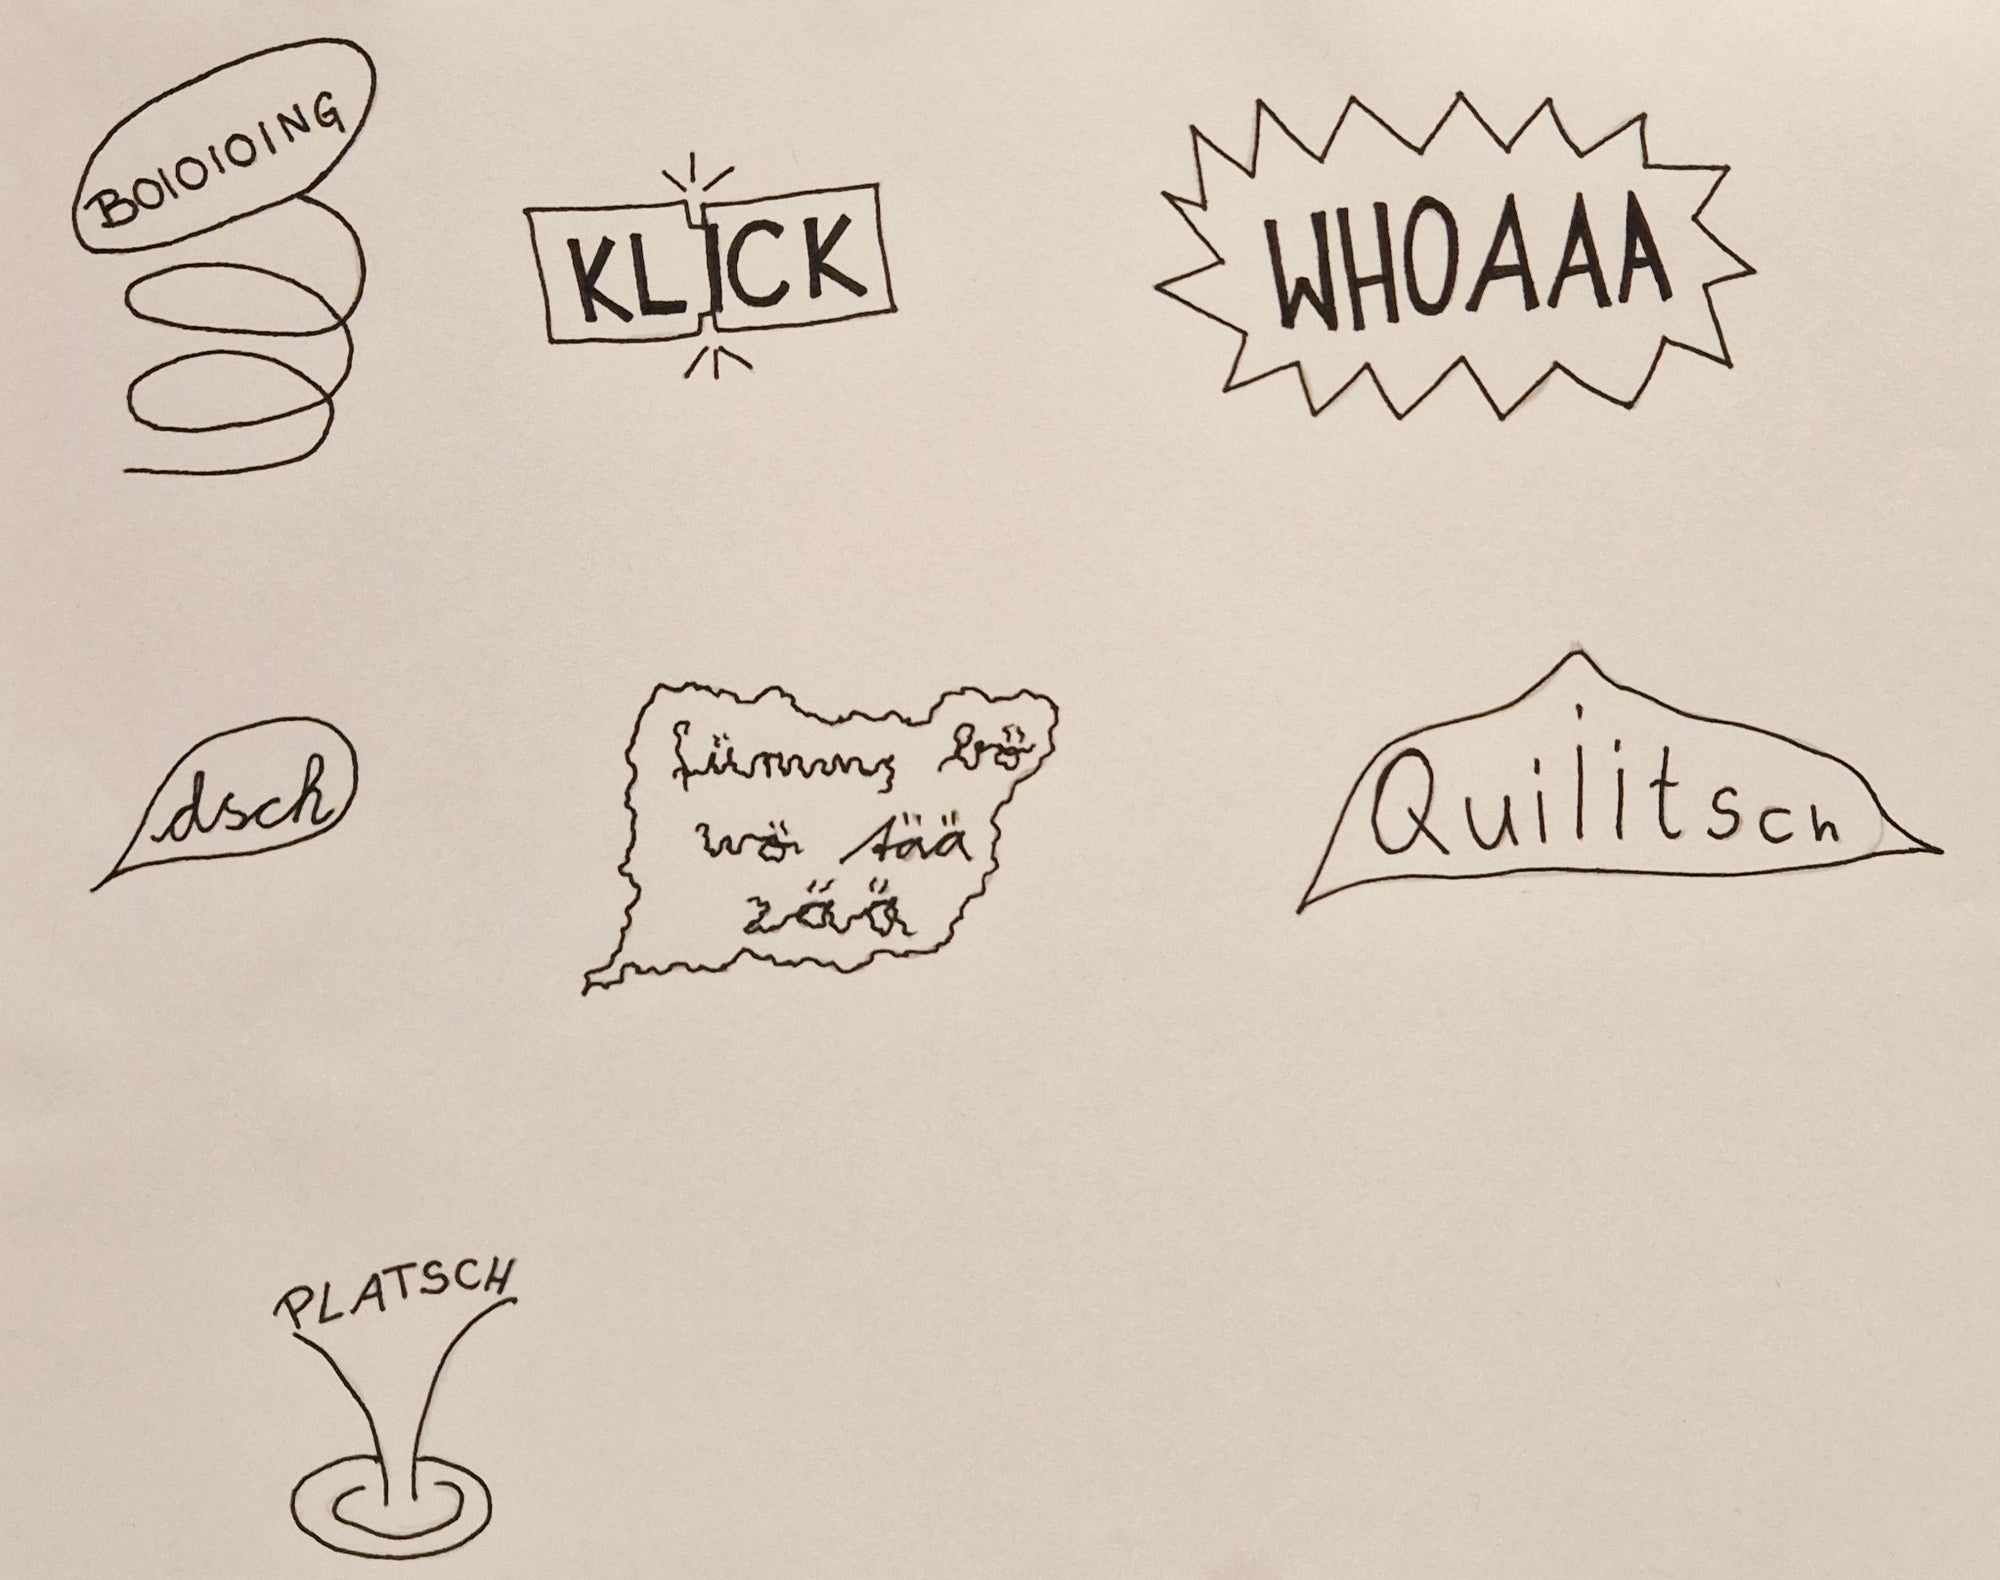 BOIOIOING
KLICK
WHOAAA
dsch
bö
wö tää
zää
Quilitsch
PLATSCH